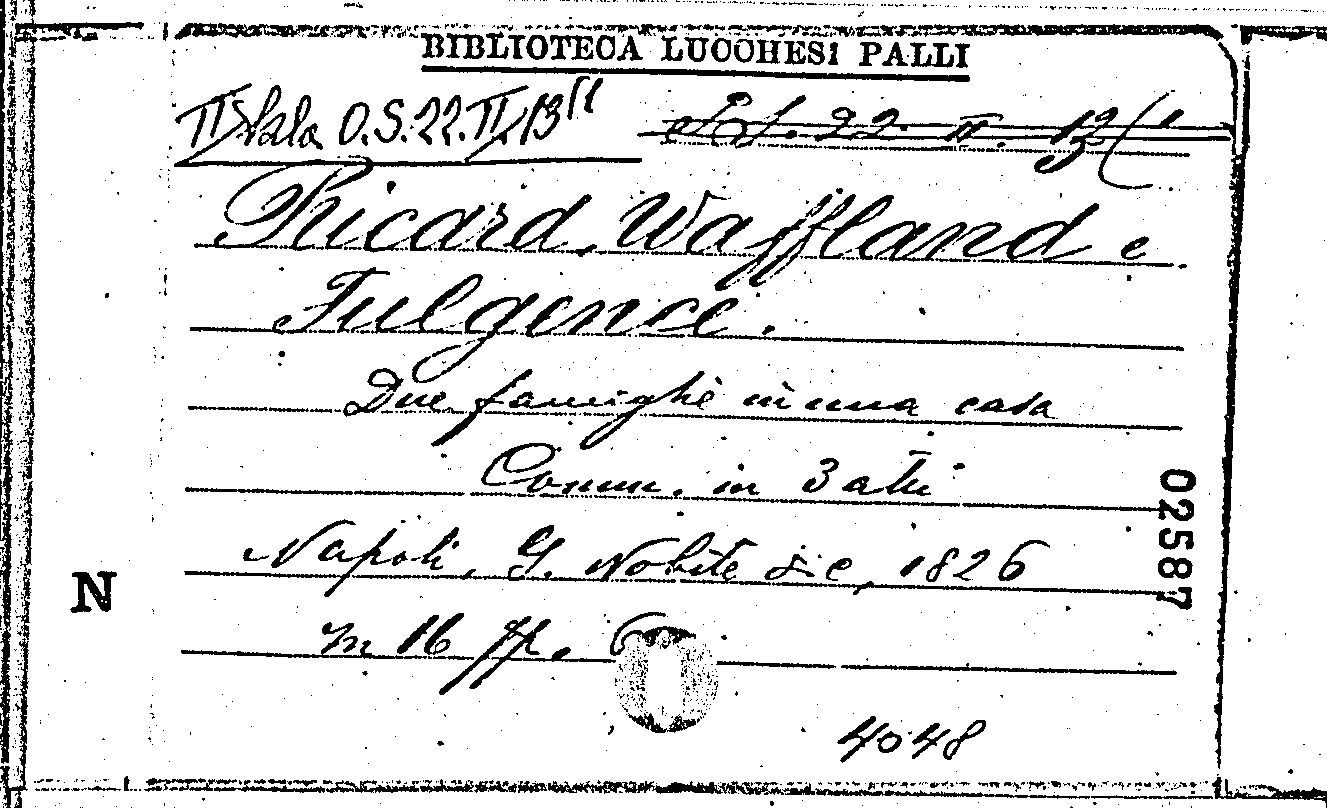 BIBLIOTECA LUCCHESI PALLI
II Sala O.S.22.II.13
22. II. 13
Ricard, Waffland e
Fulgence.
Due famiglie in una casa
Comm. in 3 atti
Napoli, G. Nobile & C, 1826
in 16 pp. 6
N
02587
4048